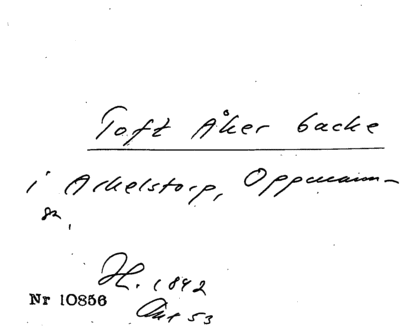 Toft Åker backe
i Arkelstorp, Oppmann-
sn.
H. 1842
Nr 10856
53